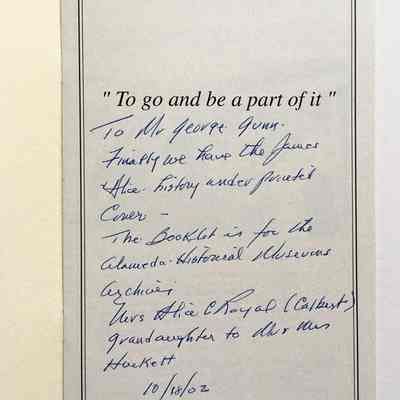 " To go and be a part of it "
To Mr George Gunn.
Finally we have the James
Alice history under printed
Cover –
The Booklet is for the
Alameda Historical Museums
Archives
Mrs Alice C Royal (Calbert)
grandaughter to Mr & Mrs
Hackett
10/18/02